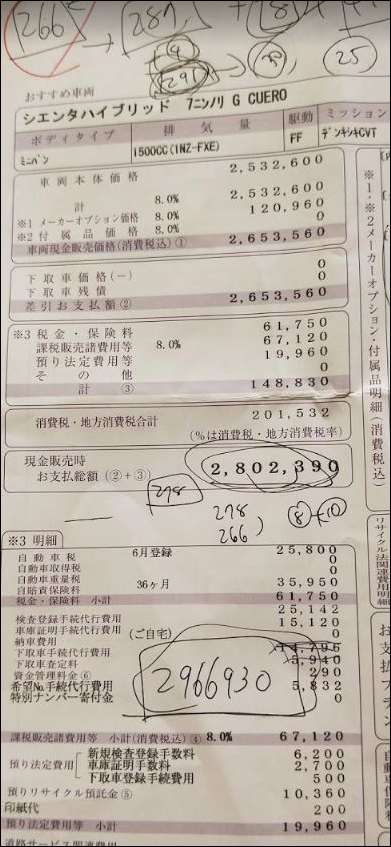 266
287
18
291
25
おすすめ車両
シエンタハイブリッド 7ニンノリ G CUERO
ボディタイプ 排気量 駆動 ミッション
ミニバン 1500CC(1NZ-FXE) FF デンキシキCVT
車両本体価格 2,532,600
計 8.0% 2,532,600
※1 メーカーオプション価格 8.0% 120,960
※2 付属品価格 8.0% 0
車両現金販売価格(消費税込)① 2,653,560
下取車価格(-) 0
下取車残債 0
差引お支払額② 2,653,560
※3 税金・保険料 61,750
課税販売諸費用等 8.0% 67,120
預り法定費用等 19,960
その他 0
計 ③ 148,830
消費税・地方消費税合計 201,532
(%は消費税・地方消費税率)
現金販売時
お支払総額(②+③) 2,802,390
278
278
266
⑧+⑩
※3 明細
自動車税 6月登録 25,800
自動車取得税 0
自動車重量税 0
自賠責保険料 36ヶ月 35,950
税金・保険料 小計 61,750
検査登録手続代行費用 25,142
車庫証明手続代行費用 (ご自宅) 15,120
納車費用 0
下取車手続代行費用 14,796
下取車査定料 5,940
資金管理料金⑥ 290
希望No.手続代行費用 5,832
特別ナンバー寄付金 0
2966930
課税販売諸費用等 小計(消費税込)④ 8.0% 67,120
預り法定費用
新規検査登録手数料 6,200
車庫証明手数料 2,700
下取車登録手続費用 500
預りリサイクル預託金⑤ 10,360
印紙代 200
預り法定費用等 小計 19,960
道路サービス関連費用
※1・※2 メーカーオプション・付属品明細(消費税込)
リサイクル法関連費用明細